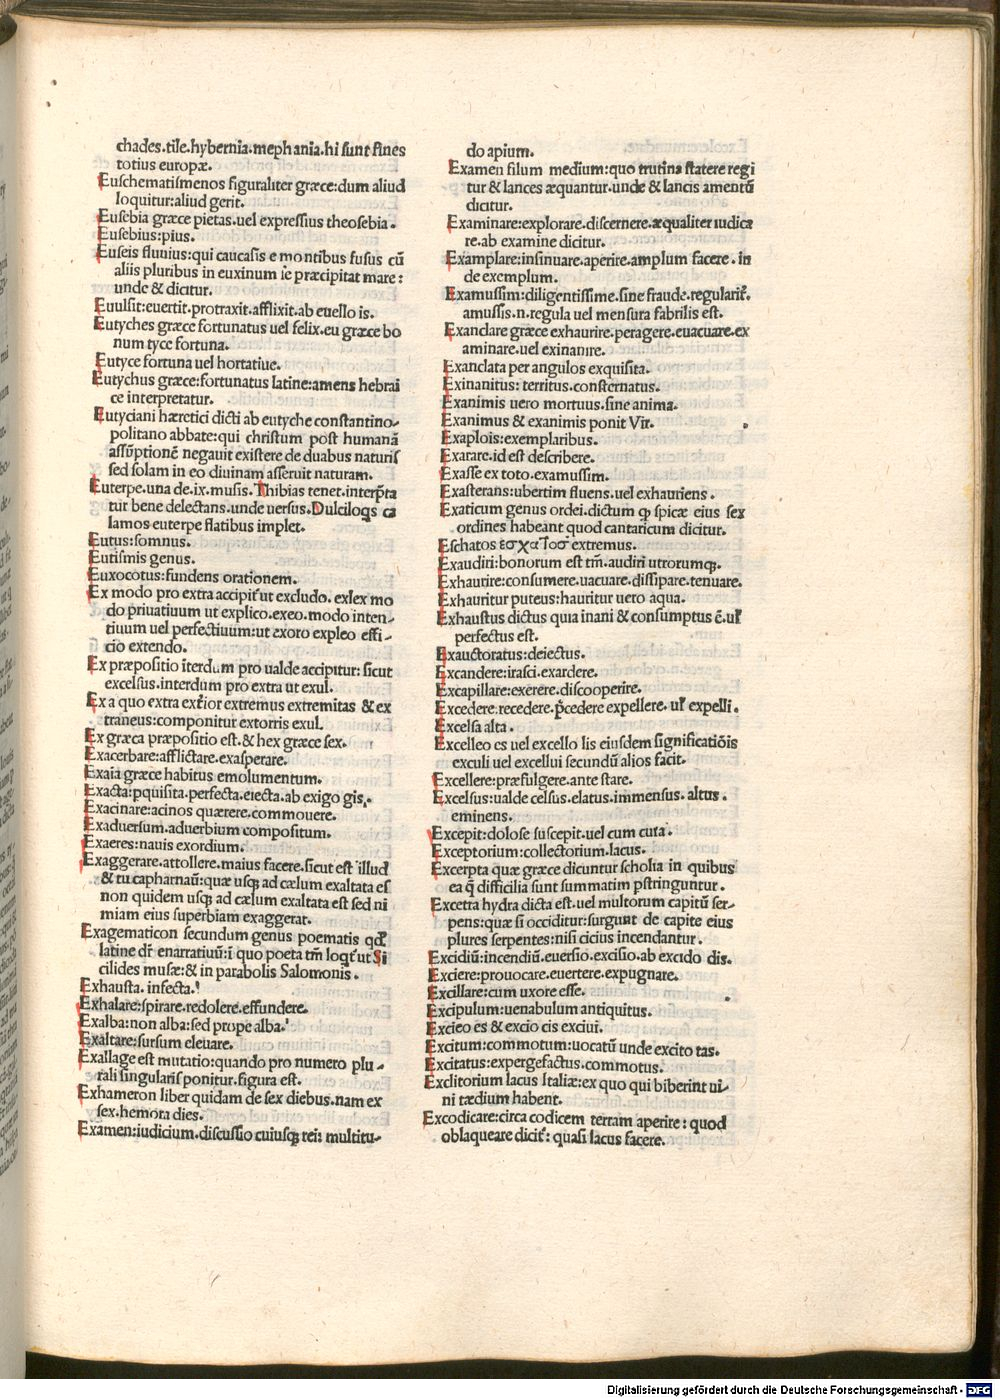 chades.tile.hybernia.mephania.hi sunt fines
totius europæ.
Euschematismenos figuraliter græce:dum aliud
loquitur:aliud gerit.
Eusebia græce pietas.uel expressius theosebia.
Eusebius:pius.
Euseis fluuius:qui caucasis e montibus fusus cū
aliis pluribus in euxinum se præcipitat mare:
unde & dicitur.
Euulsit:euertit.protraxit.afflixit.ab euello is.
Eutyches græce fortunatus uel felix.eu græce bo
num tyce fortuna.
Eutyce fortuna uel hortatiue.
Eutychus græce:fortunatus latine:amens hebrai
ce interpretatur.
Eutyciani hæretici dicti ab eutyche constantino-
politano abbate:qui christum post humanā
assūptionē negauit existere de duabus naturis
sed solam in eo diuinam asseruit naturam.
Euterpe.una de.ix.musis.Thibias tenet.interp̄ta
tur bene delectans.unde uersus.Dulciloqs ca
lamos euterpe flatibus implet.
Eutus:somnus.
Eutismis genus.
Euxocotus:fundens orationem.
Ex modo pro extra accipit̃ ut excludo.exlex mo
do priuatiuum ut explico.exeo.modo inten-
tiuum uel perfectiuum:ut exoro expleo effi-
cio extendo.
Ex præpositio īterdum pro ualde accipitur: sicut
excelsus.interdum pro extra ut exul.
Ex a quo extra exterior extremus extremitas & ex
traneus:componitur extorris exul.
Ex græca præpositio est.& hex græce sex.
Exacerbare:afflictare.exasperare.
Exaia græce habitus emolumentum.
Exacta:pquisita.perfecta.eiecta.ab exigo gis.
Exacinare:acinos quærere.commouere.
Exaduersum.aduerbium compositum.
Exaeres:nauis exordium.
Exaggerare.attollere.maius facere.sicut est illud
& tu capharnaū:quæ usq; ad cælum exaltata es
non quidem usq; ad cælum exaltata est sed ni
miam eius superbiam exaggerat.
Exagematicon secundum genus poematis qd̃
latine dr̃ enarratiuū:ī quo poeta tm̄ loqt̃ ut Si
cilides musæ:& in parabolis Salomonis.
Exhausta. infecta.
Exhalare:spirare.redolere.effundere.
Exalba:non alba:sed prope alba.
Exaltare:sursum eleuare.
Exallage est mutatio:quando pro numero plu-
rali singularis ponitur.figura est.
Exhameron liber quidam de sex diebus.nam ex
sex.hemora dies.
Examen:iudicium.discussio cuiusq; rei: multitu-
do apium.
Examen filum medium:quo trutina statere regi
tur & lances æquantur.unde & lancis amentū
dicitur.
Examinare:explorare.discernere.æqualiter iudica
re.ab examine dicitur.
Examplare:insinuare.aperire.amplum facere. in
de exemplum.
Examussim:diligentissime.sine fraude.regularit̃.
amussis.n.regula uel mensura fabrilis est.
Exanclare græce exhaurire.peragere.euacuare.ex
aminare.uel exinanire.
Exanclata per angulos exquisita.
Exinanitus: territus.consternatus.
Exanimis uero mortuus.sine anima.
Exanimus & exanimis ponit Vir.
Exaplois:exemplaribus.
Exarare.id est describere.
Exasse ex toto.examussim.
Exasterans:ubertim fluens.uel exhauriens.
Exaticum genus ordei.dictum q̨ spicæ eius sex
ordines habeant quod cantaricum dicitur.
Eschatos ἐσχατοσ extremus.
Exaudiri:bonorum est tm̄.audiri utrorumq;.
Exhaurire:consumere.uacuare.dissipare.tenuare.
Exhauritur puteus:hauritur uero aqua.
Exhaustus dictus quia inani & consumptus ē.ul̃
perfectus est.
Exauctoratus:deiectus.
Excandere:irasci.exardere.
Excapillare:exerere.discooperire.
Excedere:recedere.p̄cedere expellere. ul̃ expelli.
Excelsa alta.
Excelleo es uel excello lis eiusdem significatiōis
exculi uel excellui secundū alios facit.
Excellere:præfulgere.ante stare.
Excelsus:ualde celsus.elatus.immensus. altus.
eminens.
Excepit:dolose suscepit.uel cum cura.
Exceptorium:collectorium.lacus.
Excerpta quæ græce dicuntur scholia in quibus
ea q̄ difficilia sunt summatim pstringuntur.
Excetra hydra dicta est.uel multorum capitū ser-
pens:quæ si occiditur:surgunt de capite eius
plures serpentes:nisi cicius incendantur.
Excidiū:incendiū.euersio.excisio.ab excido dis.
Exciere:prouocare.euertere.expugnare.
Excillare:cum uxore esse.
Excipulum:uenabulum antiquitus.
Excieo es & excio cis exciui.
Excitum:commotum:uocatū unde excito tas.
Excitatus:expergefactus.commotus.
Exclitorium lacus Italiæ:ex quo qui biberint ui-
ni tædium habent.
Excodicare:circa codicem terram aperire: quod
oblaqueare dicit̃: quasi lacus facere.
Digitalisierung gefördert durch die Deutsche Forschungsgemeinschaft - DFG